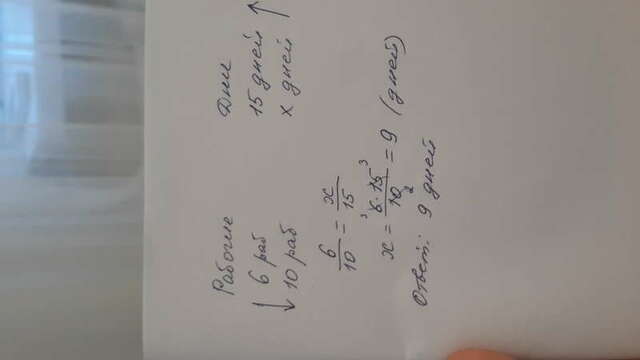 Рабочие Дни
↓ 6 раб 15 дней ↑
10 раб x дней
6/10 = x/15
x = 6·15/10 = 9 (дней)
Ответ: 9 дней